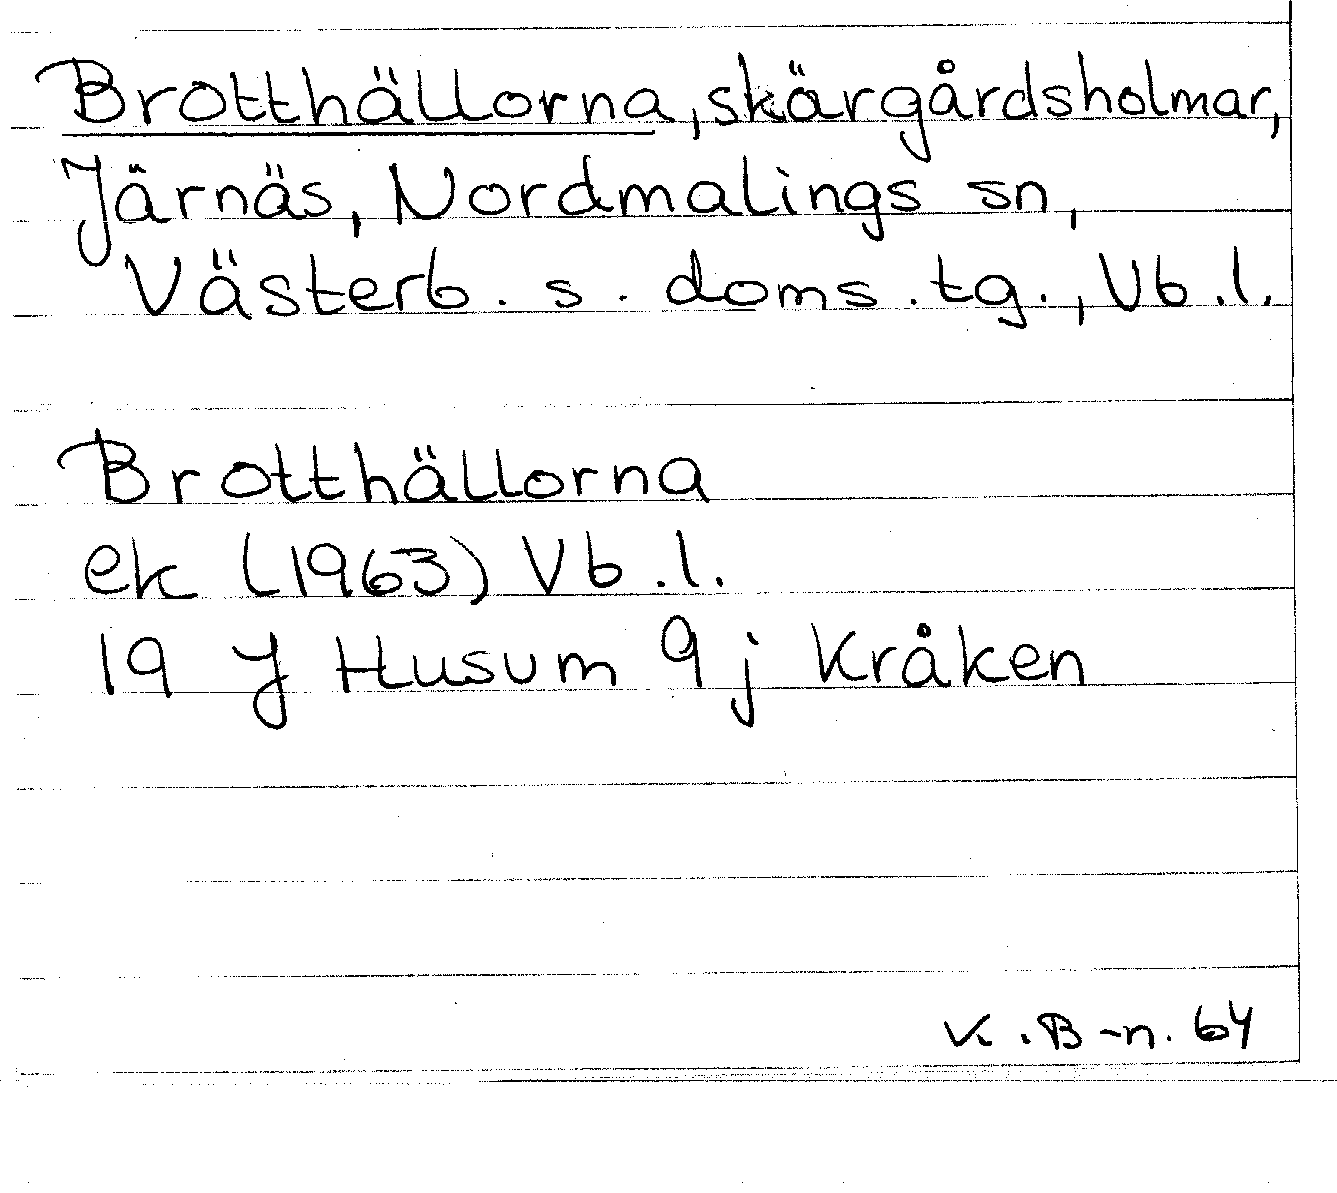 Brotthällorna, skärgårdsholmar,
Järnäs, Nordmalings sn,
Västerb. s. doms. tg., Vb. l.
Brotthällorna
ek (1963) Vb. l.
19 J Husum 9 j Kråken
K. B-n. 64